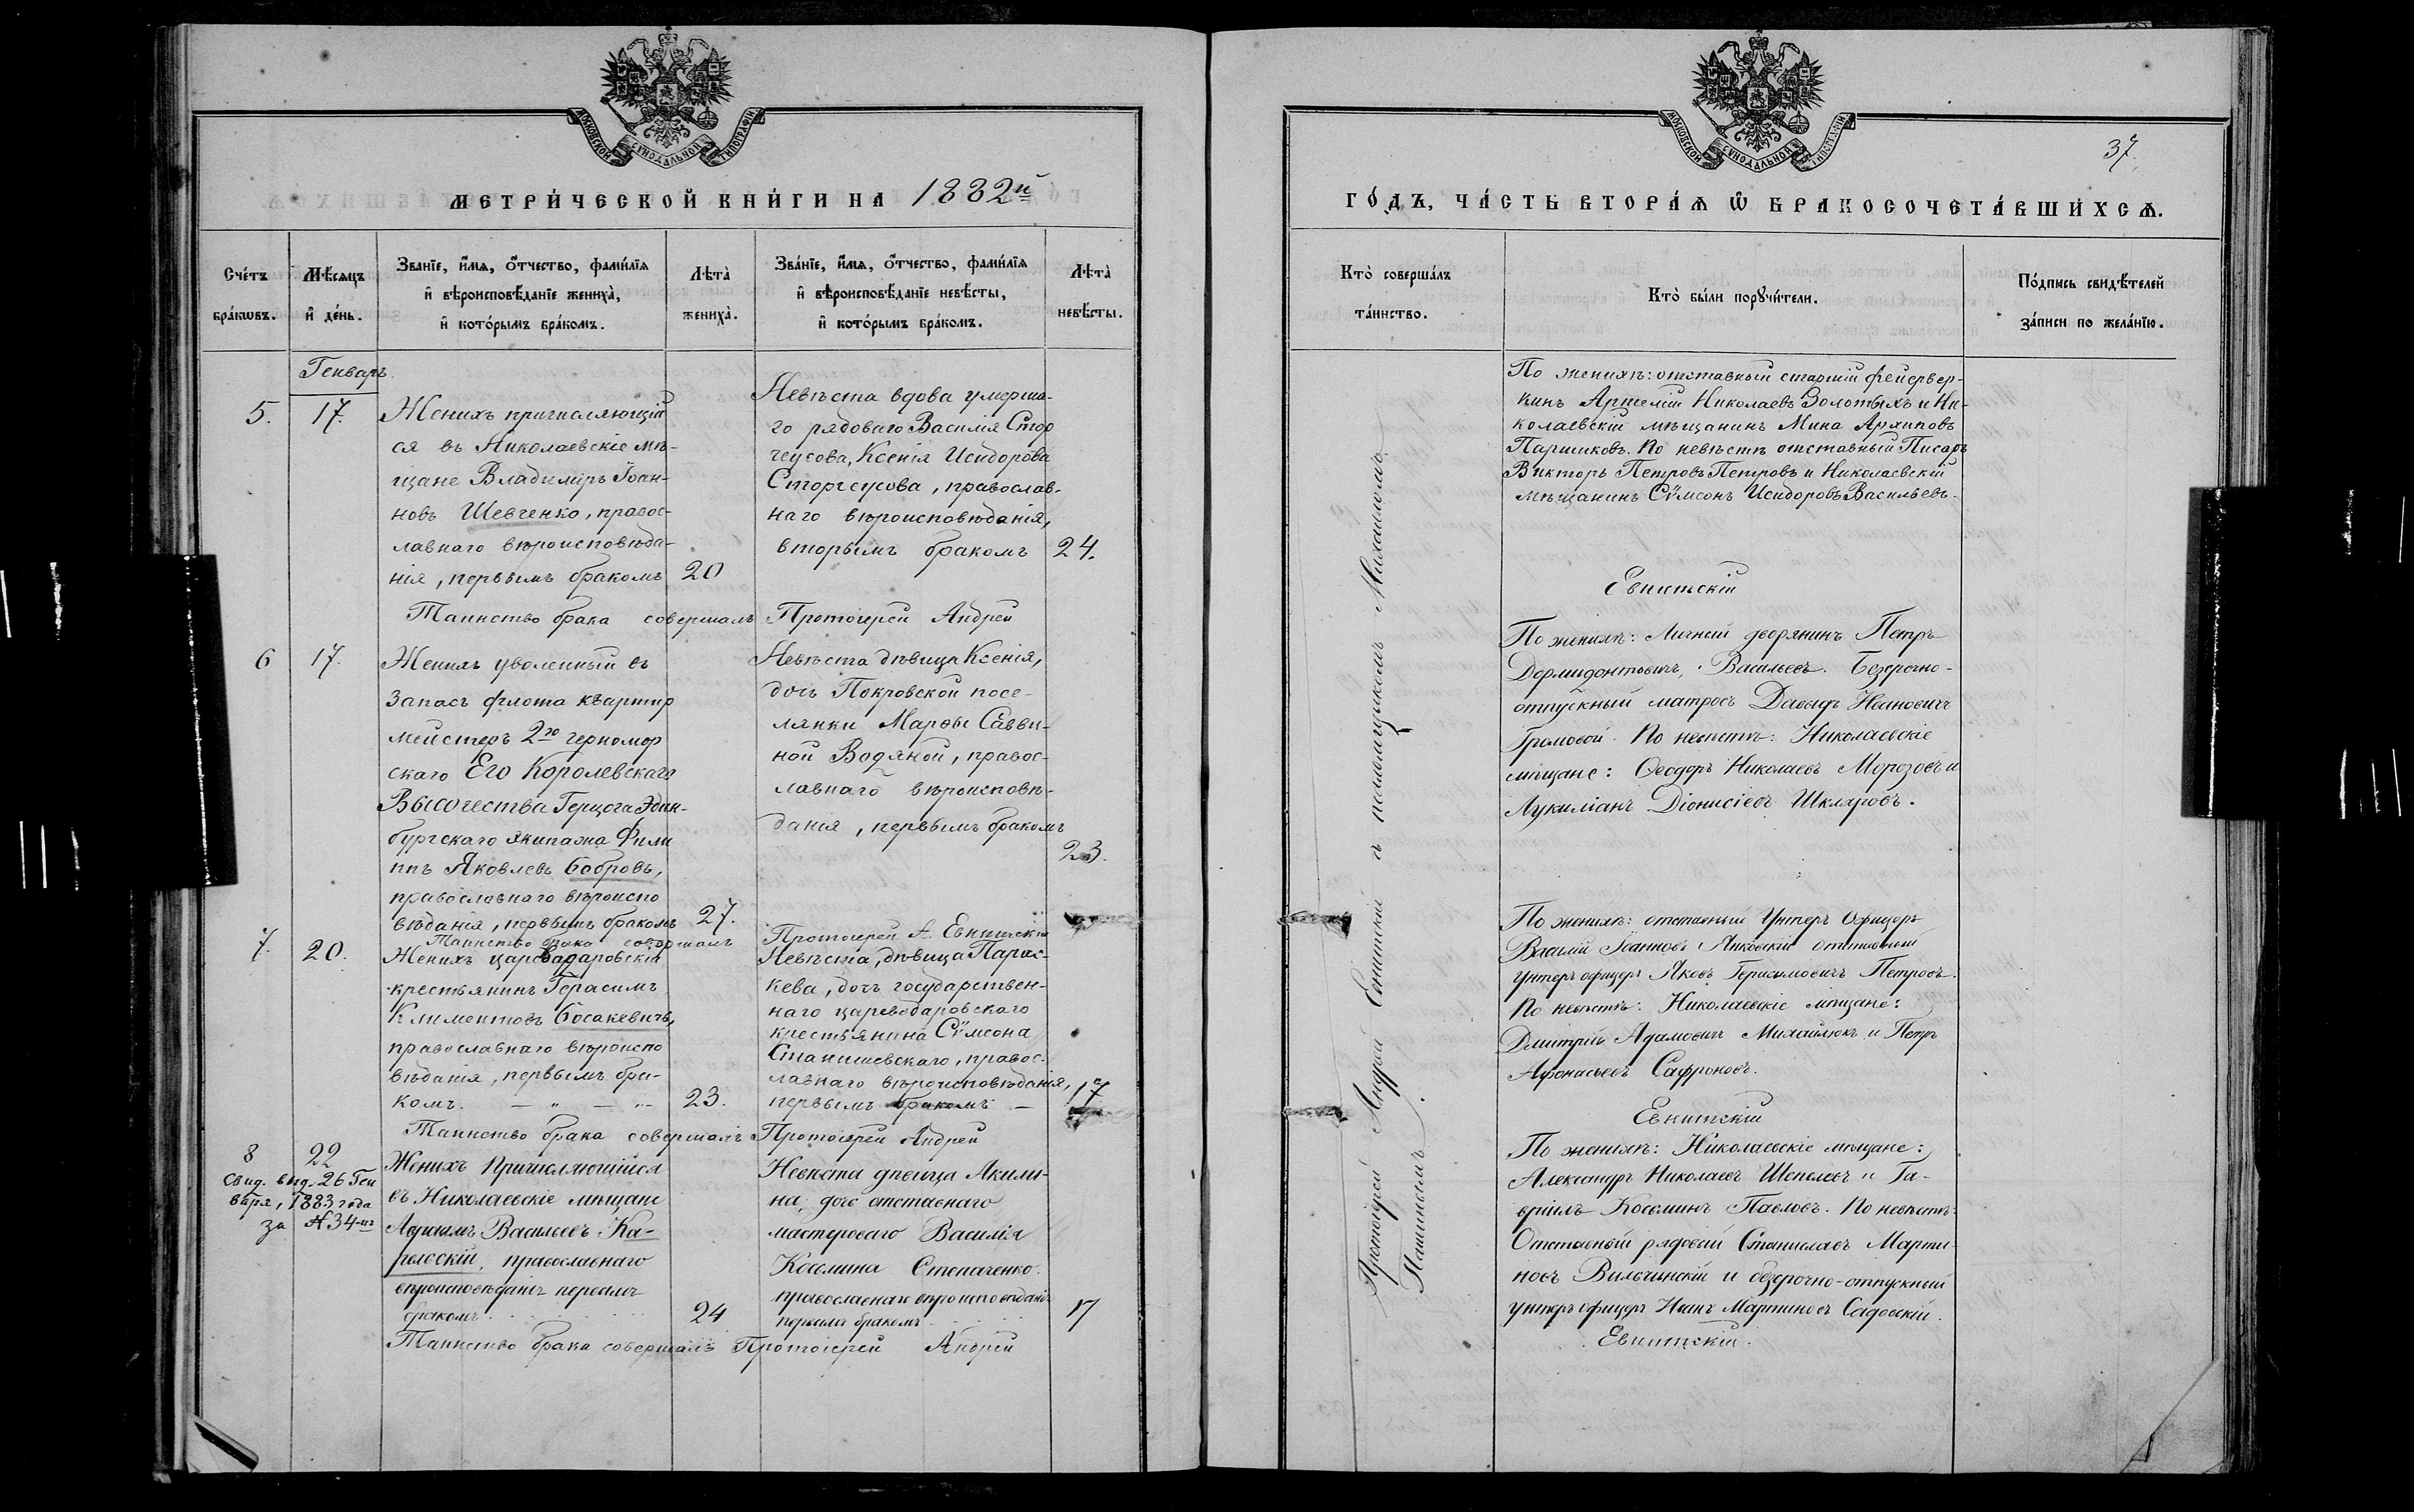 МОСКОВСКОЙ СѴНОДАЛЬНОЙ ТИПОГРАФІИ
МЕТРИ́ЧЕСКОЙ КНИ́ГИ НА 1882й
Сче́тъ бра́кѡвъ.
Мѣ́сяцъ и҆ де́нь.
Зва́нїе, и҆́мѧ, ѻ҆́тчество, фами́лїѧ и҆ вѣроисповѣ́данїе жениха̀, и҆ кото́рымъ бра́комъ.
Лѣта̀ жениха̀.
Зва́нїе, и҆́мѧ, ѻ҆́тчество, фами́лїѧ и҆ вѣроисповѣ́данїе невѣ́сты, и҆ кото́рымъ бра́комъ.
Лѣта̀ невѣ́сты.
Генварь.
5. 17.
Женихъ причисляющій
ся въ Николаевскіе мѣ-
щане Владиміръ Іоан-
новъ Шевченко, правос-
лавнаго вѣроисповѣда-
нія, первымъ бракомъ 20
Невѣста вдова умерша-
го рядоваго Василія Стор
чеусова, Ксенія Исидорова
Сторчеусова, православ-
наго вѣроисповѣданія,
вторымъ бракомъ 24.
Таинство брака совершалъ Протоіерей Андрей
6 17.
Женихъ уволенный въ
запасъ флота квартир
мейстеръ 2го черномор
скаго Его Королевскаго
Высочества Герцога Эдин-
бургскаго экипажа Фили
ппъ Яковлевъ Бобровъ,
православнаго вѣроиспо
вѣданія, первымъ бракомъ 27.
Невѣста дѣвица Ксенія,
дочь Покровской посе-
лянки Марѳы Савви-
ной Водяной, правос-
лавнаго вѣроисповѣ-
данія, первымъ бракомъ
23.
Таинство брака совершалъ Протоіерей А. Евнитскій
7. 20.
Женихъ царедаровскій
крестьянинъ Герасимъ
Климентовъ Босакевичъ,
православнаго вѣроиспо
вѣданія, первымъ бра-
комъ. — „ — „ — 23.
Невѣста, дѣвица Парас-
кева, дочь государствен-
наго цареводаровскаго
крестьянина Сѵмеона
Станишевскаго, правос-
лавнаго вѣроисповѣданія,
первымъ бракомъ — 17
Таинство брака совершалъ Протоіерей Андрей
8 22
Свид. выд. 26 Ген
варя, 1883 года
за №34-мъ
Женихъ Причисляющійся
въ Николаевскіе мѣщане
Васильевъ Ка-
рпвоскій, православнаго
вѣроисповѣданія первымъ
бракомъ 24
Невѣста дѣвица Акили-
на, дочь отставнаго
мастероваго Василія
Косьмина Степаченко
православнаго вѣроисповѣданія
первымъ бракомъ 17
Таинство брака совершалъ Протоіерей Андрей
МОСКОВСКОЙ СѴНОДАЛЬНОЙ ТИПОГРАФІИ
37.
ГО́ДЪ, ЧА́СТЬ ВТОРА́Ѧ Ѡ҆ БРАКОСОЧЕТА́ВШИ́ХСѦ.
Кто̀ соверша́лъ та́инство.
Кто̀ бы́ли порꙋчи́тели.
По́дпись свидѣ́телей за́писи по жела́нїю.
Протоіерей Андрей Евнитскій съ псаломщикомъ Михаиломъ
Пашинымъ.
По женихѣ: отставный старшій фейервер-
керъ Артемій Николаевъ Золотыхъ и Ни-
колаевскій мѣщанинъ Мина Архиповъ
Паршиковъ. По невѣстѣ отставный Писарь
Викторъ Петровъ Петровъ и Николаевскій
мѣщанинъ Сѵмеонъ Исидоровъ Васильевъ.
Евнитскій
По женихѣ: Личный дворянинъ Петръ
Дормидонтовичъ, Васильевъ. Безсрочно-
отпускный матросъ Давыдъ Ивановичъ
Громовой. По невѣстѣ: Николаевскіе
мѣщане: Ѳеодоръ Николаевъ Морозовъ и
Лукиліанъ Діонисіевъ Шкляровъ.
По женихѣ: отставный Унтеръ Офицеръ
Василій Іоанновъ Янковскій отставный
унтеръ офицеръ Яковъ Герасимовичъ Петровъ.
По невѣстѣ: Николаевскіе мѣщане:
Дмитрій Адамовичъ Михайлюкъ и Петръ
Афонасьевъ Сафроновъ.
Евнитскій
По женихѣ: Николаевскіе мѣщане:
Александръ Николаевъ Шепелевъ и Га-
вріилъ Косьминъ Павловъ. По невѣстѣ:
Отставный рядовой Станиславъ Марти-
новъ Вильчинскій и безсрочно-отпускный
унтеръ офицеръ Иванъ Мартиновъ Садовскій.
Евнитскій.